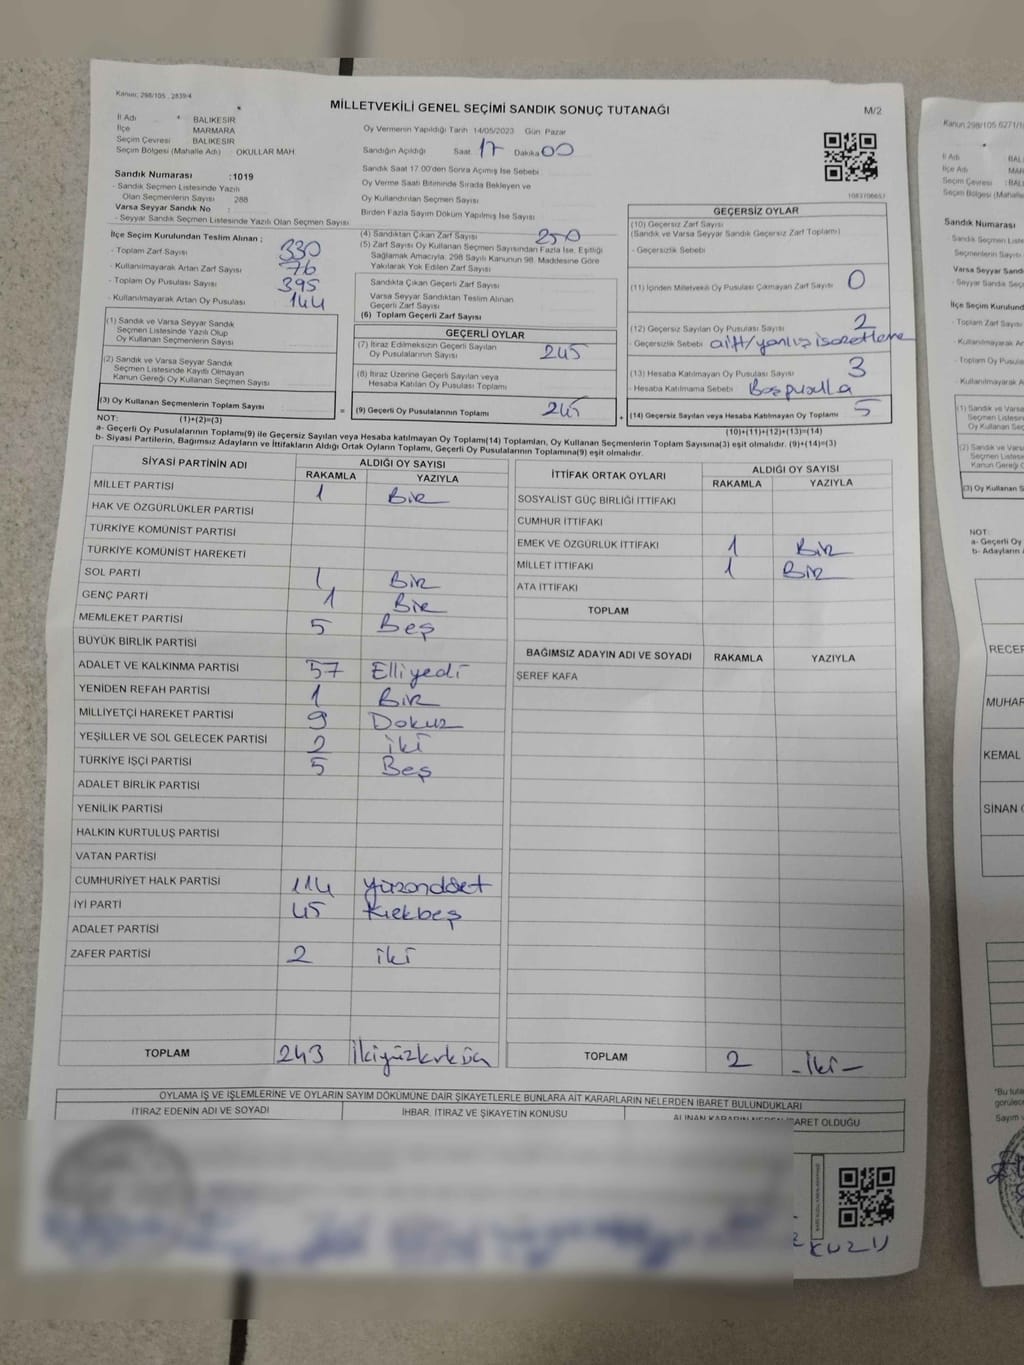 Kanun: 298/105 , 2839/4
MİLLETVEKİLİ GENEL SEÇİMİ SANDIK SONUÇ TUTANAĞI
M/2
İl Adı BALIKESİR
İlçe MARMARA
Seçim Çevresi BALIKESİR
Seçim Bölgesi (Mahalle Adı) : OKULLAR MAH
Sandık Numarası :1019
- Sandık Seçmen Listesinde Yazılı
Olan Seçmenlerin Sayısı 288
Varsa Seyyar Sandık No :
- Seyyar Sandık Seçmen Listesinde Yazılı Olan Seçmen Sayısı
Oy Vermenin Yapıldığı Tarih 14/05/2023 Gün Pazar
Sandığın Açıldığı Saat 17 Dakika 00
Sandık Saat 17.00'den Sonra Açımış İse Sebebi
Oy Verme Saati Bitiminde Sırada Bekleyen ve
Oy Kullandırılan Seçmen Sayısı
Birden Fazla Sayım Döküm Yapılmış İse Sayısı
1083706657
İlçe Seçim Kurulundan Teslim Alınan ;
- Toplam Zarf Sayısı 330
- Kullanılmayarak Artan Zarf Sayısı 76
- Toplam Oy Pusulası Sayısı 395
- Kullanılmayarak Artan Oy Pusulası 144
(1) Sandık ve Varsa Seyyar Sandık
Seçmen Listesinde Yazılı Olup
Oy Kullanan Seçmenlerin Sayısı
(2) Sandık ve Varsa Seyyar Sandık
Seçmen Listesinde Kayıtlı Olmayan
Kanun Gereği Oy Kullanan Seçmen Sayısı
(3) Oy Kullanan Seçmenlerin Toplam Sayısı
(4) Sandıktan Çıkan Zarf Sayısı 250
(5) Zarf Sayısı Oy Kullanan Seçmen Sayısından Fazla İse, Eşitliği
Sağlamak Amacıyla, 298 Sayılı Kanunun 98. Maddesine Göre
Yakılarak Yok Edilen Zarf Sayısı
Sandıkta Çıkan Geçerli Zarf Sayısı
Varsa Seyyar Sandıktan Teslim Alınan
Geçerli Zarf Sayısı
(6) Toplam Geçerli Zarf Sayısı
GEÇERLİ OYLAR
(7) İtiraz Edilmeksizin Geçerli Sayılan
Oy Pusulalarının Sayısı 245
(8) İtiraz Üzerine Geçerli Sayılan veya
Hesaba Katılan Oy Pusulası Toplamı
= (9) Geçerli Oy Pusulalarının Toplamı 245
GEÇERSİZ OYLAR
(10) Geçersiz Zarf Sayısı
(Sandık ve Varsa Seyyar Sandık Geçersiz Zarf Toplamı)
- Geçersizlik Sebebi
(11) İçinden Milletvekili Oy Pusulası Çıkmayan Zarf Sayısı 0
(12) Geçersiz Sayılan Oy Pusulası Sayısı 2
- Geçersizlik Sebebi çift/yanlış isaretleme
(13) Hesaba Katılmayan Oy Pusulası Sayısı 3
- Hesaba Katılmama Sebebi Boş pusulla
+ (14) Geçersiz Sayılan veya Hesaba Katılmayan Oy Toplamı 5
NOT: (1)+(2)=(3)
(10)+(11)+(12)+(13)=(14)
a- Geçerli Oy Pusulalarının Toplamı(9) ile Geçersiz Sayılan veya Hesaba katılmayan Oy Toplamı(14) Toplamları, Oy Kullanan Seçmenlerin Toplam Sayısına(3) eşit olmalıdır. (9)+(14)=(3)
b- Siyasi Partilerin, Bağımsız Adayların ve İttifakların Aldığı Ortak Oyların Toplamı, Geçerli Oy Pusulalarının Toplamına(9) eşit olmalıdır.
SİYASİ PARTİNİN ADI ALDIĞI OY SAYISI
RAKAMLA YAZIYLA
MİLLET PARTİSİ 1 Bir
HAK VE ÖZGÜRLÜKLER PARTİSİ
TÜRKİYE KOMÜNİST PARTİSİ
TÜRKİYE KOMÜNİST HAREKETİ
SOL PARTİ 1 Bir
GENÇ PARTİ 1 Bir
MEMLEKET PARTİSİ 5 Beş
BÜYÜK BİRLİK PARTİSİ
ADALET VE KALKINMA PARTİSİ 57 Elliyedi
YENİDEN REFAH PARTİSİ 1 Bir
MİLLİYETÇİ HAREKET PARTİSİ 9 Dokuz
YEŞİLLER VE SOL GELECEK PARTİSİ 2 iki
TÜRKİYE İŞÇİ PARTİSİ 5 Beş
ADALET BİRLİK PARTİSİ
YENİLİK PARTİSİ
HALKIN KURTULUŞ PARTİSİ
VATAN PARTİSİ
CUMHURİYET HALK PARTİSİ 114 yüzondört
İYİ PARTİ 45 Kırkbeş
ADALET PARTİSİ
ZAFER PARTİSİ 2 iki
TOPLAM 243 İkiyüzkırküç
İTTİFAK ORTAK OYLARI ALDIĞI OY SAYISI
RAKAMLA YAZIYLA
SOSYALİST GÜÇ BİRLİĞİ İTTİFAKI
CUMHUR İTTİFAKI
EMEK VE ÖZGÜRLÜK İTTİFAKI 1 Bir
MİLLET İTTİFAKI 1 Bir
ATA İTTİFAKI
TOPLAM
BAĞIMSIZ ADAYIN ADI VE SOYADI RAKAMLA YAZIYLA
ŞEREF KAFA
TOPLAM 2 -İki-
OYLAMA İŞ VE İŞLEMLERİNE VE OYLARIN SAYIM DÖKÜMÜNE DAİR ŞİKAYETLERLE BUNLARA AİT KARARLARIN NELERDEN İBARET BULUNDUKLARI
İTİRAZ EDENİN ADI VE SOYADI İHBAR, İTİRAZ VE ŞİKAYETİN KONUSU ALINAN KARARIN NEDEN İBARET OLDUĞU
KUZU
Kanun 298/105 6271/
İl Adı BAL
İlçe Adı MAR
Seçim Çevresi : BAL
Seçim Bölgesi (Mahalle
Sandık Numarası
- Sandık Seçmen Liste
Seçmenlerin Sayısı
Varsa Seyyar Sandı
- Seyyar Sandık Seç
İlçe Seçim Kurulund
- Toplam Zarf Sayısı
- Kullanılmayarak
- Toplam Oy Pusula
- Kullanılmayarak
(1) Sandık ve Varsa
Seçmen Listes
Oy Kullanan Se
(2) Sandık ve Varsa
Seçmen Listesi
Kanun Gereği O
(3) Oy Kullanan S
NOT:
a- Geçerli Oy
b- Adayların
RECEP
MUHAR
KEMAL
SİNAN